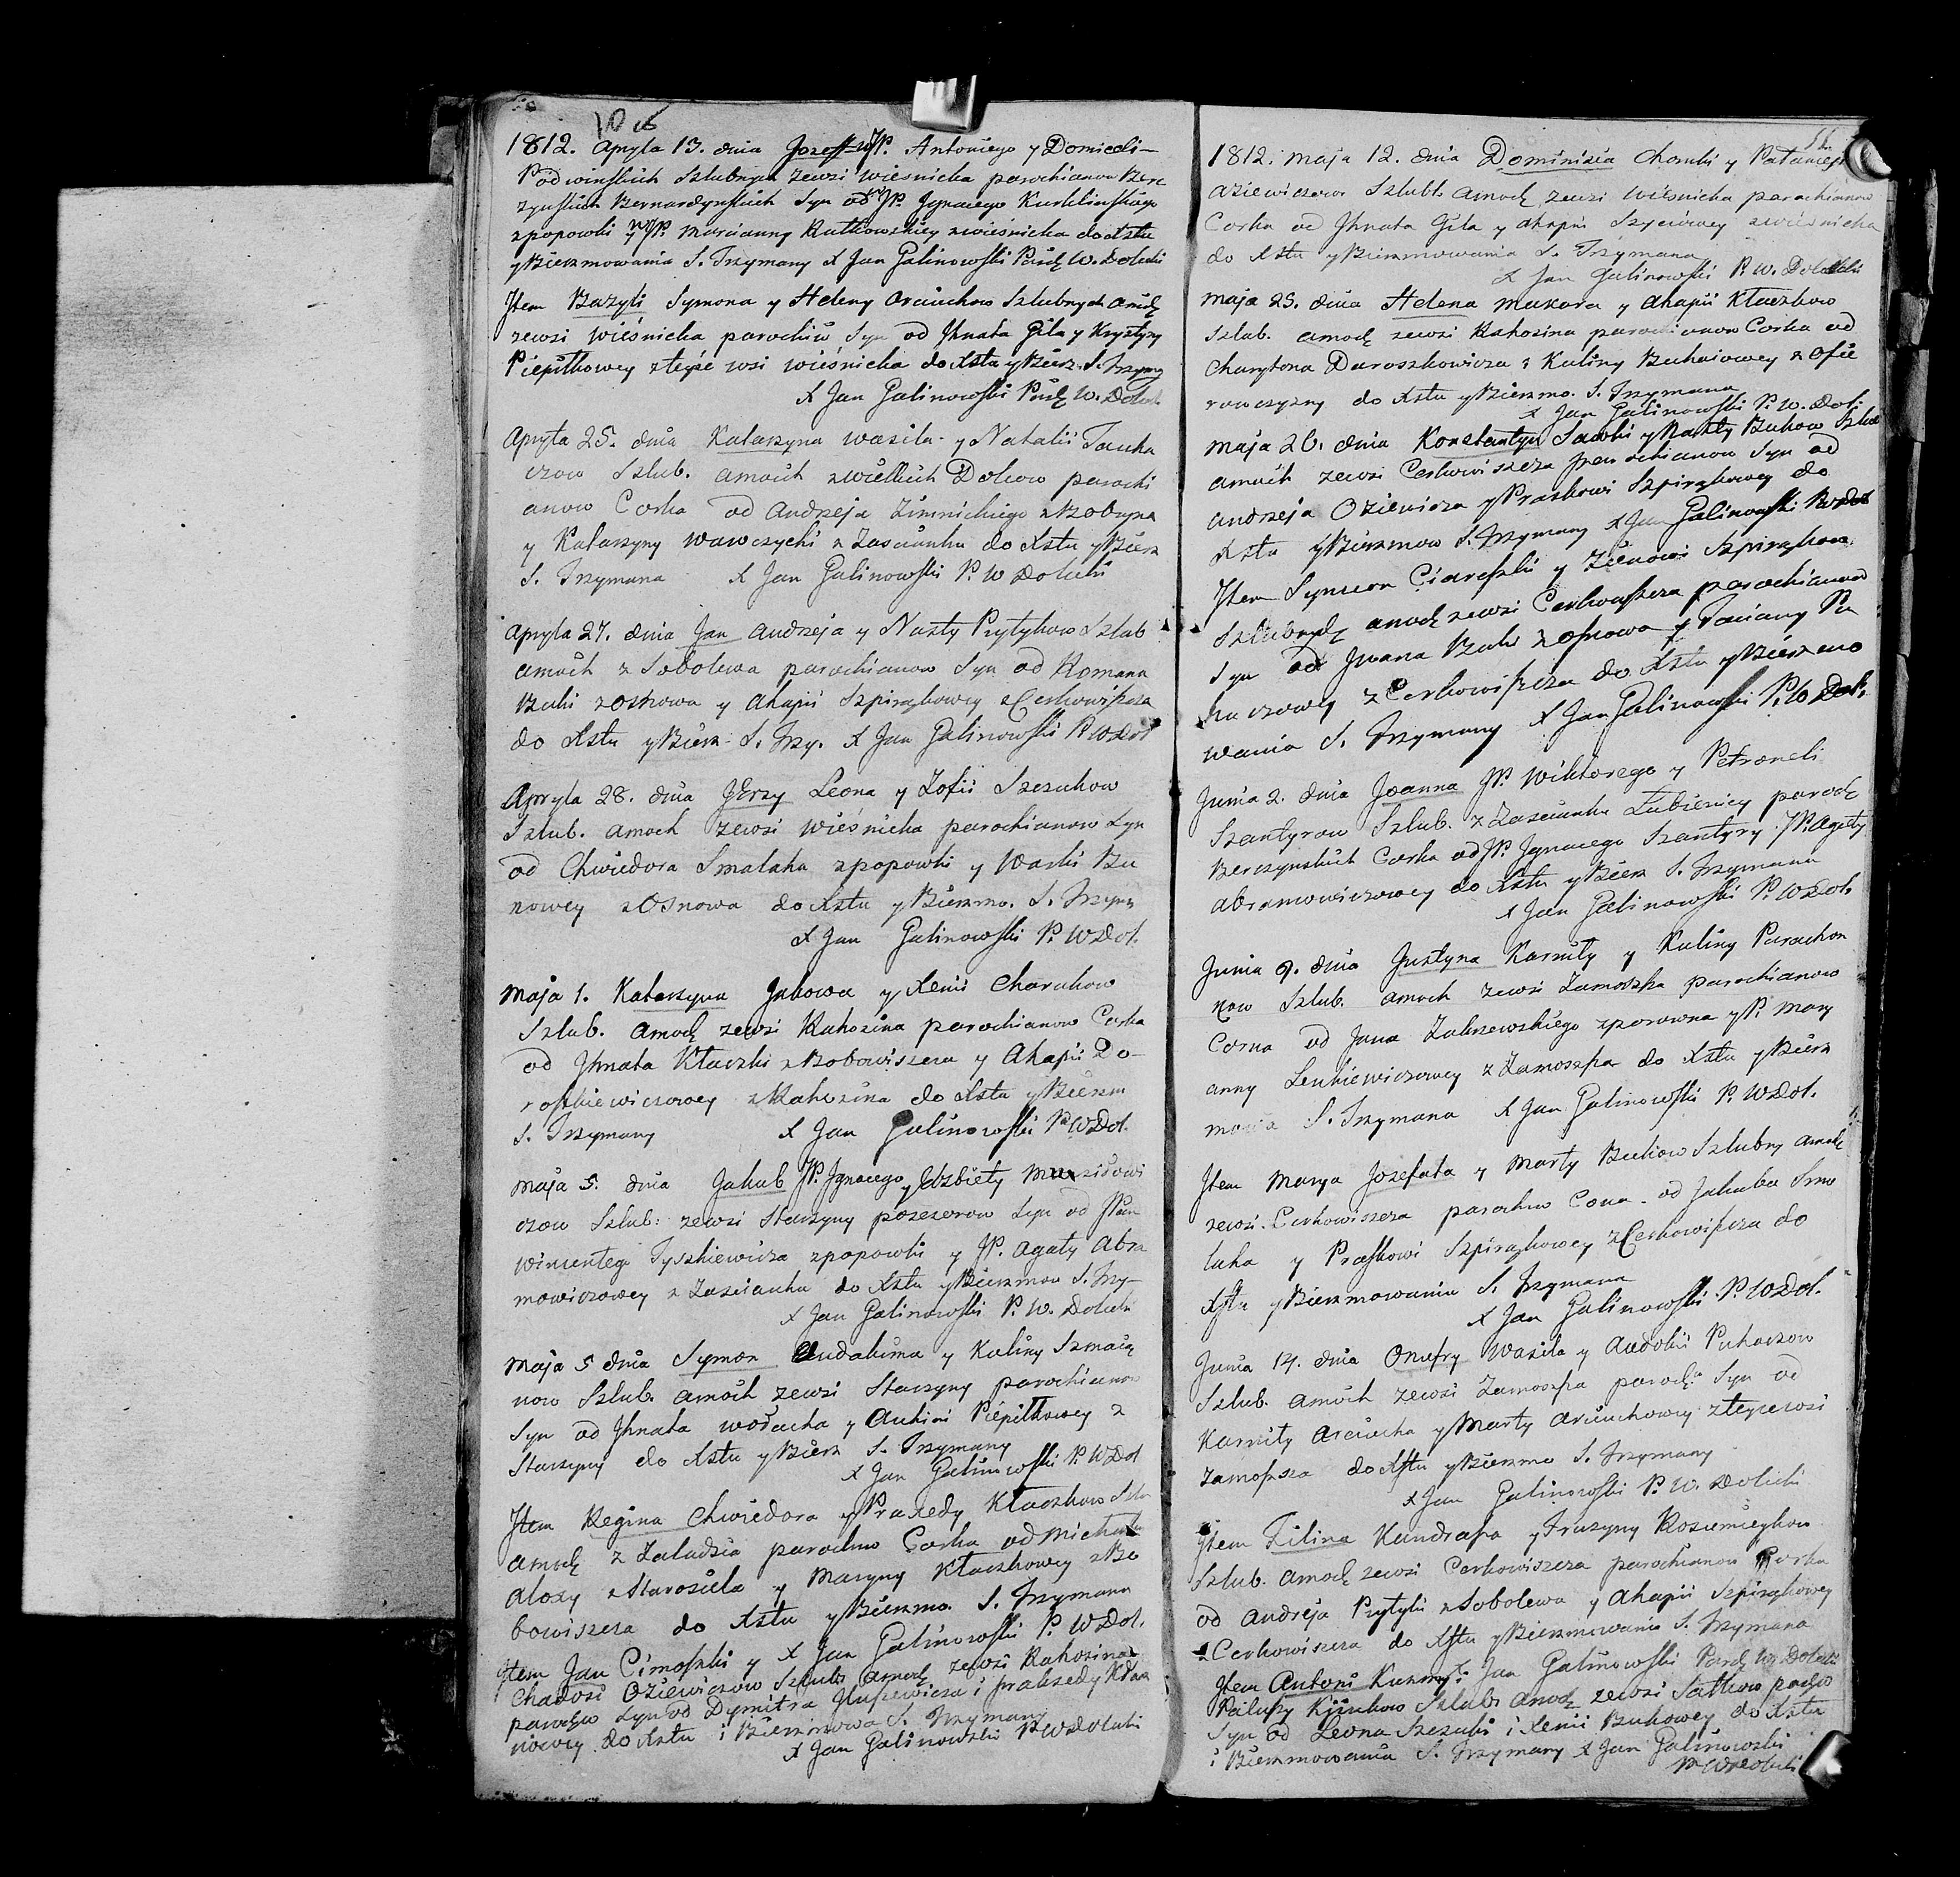 10
1812. Apryla 13. dnia Jozeff WJP. Antoniego y Domiceli-
Podwinskich Szlubnych zewsi wiesnicka parochianow Bere
zynskich Bernardynskich Syn od WJP. Jgnacego Kuklinskiego
zpopowki y WJP. Maryanny Rutkowskiey zwiesnicka do Xstu
y Bierzmowania S. Trzymany X Jan Galinowski Parch W. Dolecki
Jtem Bazyli Symona y Heleny Arciuchow Szlubnych amch
zewsi wieśnicka parochiw Syn od Jhnata Gila y Krystyny
Piepitkowey zteyze wsi wieśnicka do Xstu y Bierz. S. Trzyma
X Jan Galinowski Parch W. Dolec.
Apryla 25. dnia Katarzyna Wasila y Natalii
czow Szlub. amoich zwielkich Dolcow parochi
anow Corka od Andrzeja Zimnickiego zBobryna
y Katarzyny Wawczychi z Zascianku do Xstu y Bierz
S. Trzymana X Jan Galinowski P. W Dolecki
Apryla 27. dnia Jan Andrzeja y Nasty Prytykow Szlub
amoich z Sobolewa parochianow Syn od Romana
Buki zosnowa y Ahapii Szpirążkowey zCerkowiszcza
do Xstu y Bierz. S. Trzy. X Jan Galinowski P. W Dol
Apryla 28. dnia JErzy Leona y Zofii Szczukow
Szlub. amoch zewsi wieśnicka parochianow Syn
od Chwiedora Smalaka zpopowki y Warki Bu
kowey zOsnowa do Xstu y Bierzmo. S. Trzyma
X Jan Galinowski P. W Dol.
Maja 1. Katarzyna Jakowa y Xenii Charukow
Szlub. Amoch zewsi Rahozina parochianow Corka
od Jhnata Kłaczki zBobowiszcza y Ahapii Do-
roszkiewiczowey zRahozina do Xstu y Bierzm
S. Trzymany X Jan Galinowski P W Dol.
Maja 5. dnia Jakub JP. Jgnacego y Elzbiety
czow Szlub: zewsi Starzyny posesorow Syn od
Wincentego Tyszkiewicza zpopowki y JP. Agaty Abra
mowiczowey z Zascianku do Xstu y Bierzmow S. Trzy-
X Jan Galinowski P. W. Dolecki
Maja 5 dnia Symon Audakima y Kuliny Szmaią
now Szlub. amoich zewsi Starzyny parochianow
Syn od Jhnata y Auhini Piepitkowey z
Starzyny do Xstu y Bierz S. Trzymany
X Jan Galinowski P. W Dol
Jtem Regina Chwiedora y Praxedy Kłaczkow Szlu
amoch z Zaladzia parochow Corka od Michała
zStarosiela y Maryny Kłaczkowey zBo
bowiszcza do Xstu y Bierzmo. S. Trzymana
X Jan Galinowski P. W Dol.
Jtem Jan Cimoszki y
Chadosi Oziewiczow Szlub. amoch zewsi Rahozina
parochow Syn od Dymitra i Prakzedy Kłacz
kowey do Xstu i Bierzmowa S. Trzymany
X Jan Galinowski P W Dolecki
11.
1812. Maja 12. dnia Dominisia Chomki y
dziewiczow Szlub. amoch zewsi wieśnicka parochianow
Corka od Jhnata Gila y Ahapii zwieśnicka
do Xstu y Bierzmowania S. Trzymana
X Jan Galinowski P. W. Dolecki
Maja 25. dnia Helena Makara y Ahapii Kłaczkow
Szlub. amoch zewsi Rahozina parochianow Corka od
Charytona Daroszkowicza i Kuliny z Ofie
rowczyzny do Xstu y Bierzmo. S. Trzymana
X Jan Galinowski P. W. Dol.
Maja 26. dnia Konstantyn Sawki y Nasty Bukow Szlub
amoich zewsi Cerkowiszcza parochianow Syn od
Andrzeja Oziewicza y Praskowi Szpirążkowey do
Xstu y Bierzmow S. Trzymany X Jan Galinowski P. W Dol
Jtem Symeon Ciareszki y Zienowi Szpirążkow
Szlubnych amoch zewsi Cerkowiszcza parochianow
Syn od Jwana Buki zosnowa y Taciany Pu
haczowey zCerkowiszcza do Xstu y Bierzmo
wania S. Trzymany X Jan Galinowski P. W Dol.
Junia 2. dnia Joanna JP. Wiktorego y Petroneli
Szantyrow Szlub. z Zascianku Lubienicy paroch
Berezynskich Corka od JP. Jgnacego Szantyry JP. Agaty
Abramowiczowey do Xstu y Bierz S. Trzymana
X Jan Galinowski P. W Dol.
Junia 9. dnia Justyna Karnity y Kuliny Parachon
kow Szlub. amoch zewsi Zamoszka parochianow
Corka od Jana Zaliszewskiego y P. Mary
anny Leukiewiczowey z Zamoszka do Xstu y Bierz
mowa S. Trzymana X Jan Galinowski P. W Dol.
Jtem Marya Jozefata y Marty Bukow Szlubny amoch
zewsi Cerkowiszcza parochow Cora od Jakuba Sma
laka y Praskowi Szpirążkowey zCerkowiszcza do
Xstu y Bierzmowania S. Trzymana
X Jan Galinowski P. W Dol.
Junia 14. dnia Onufry Wasila y Audokii Puhaczow
Szlub. amoich zewsi Zamoszka paroch Syn od
Karnity Arciucha y Marty Arciuchowey zteyzewsi
Zamosza do Xstu y Bierzmo S. Trzymany
X Jan Galinowski P. W. Dolecki
Jtem Filina Kandrata y Fruzyny
Szlub. amoch zewsi Cerkowiszcza parochianow Corka
od Andreja Prytyki zSobolewa y Ahapii Szpirążkowey
z Cerkowiszcza do Xstu y Bierzmowania S. Trzymana
X Jan Galinowski Parch W Dolecki
Jtem Antoni Kuzmy i
Szlub. amoch zewsi Satkow
Syn od Leona Szczuki i Xenii Bukowey do Xstu
i Bierzmowania S. Trzymany X Jan Galinowski
P W Dolecki